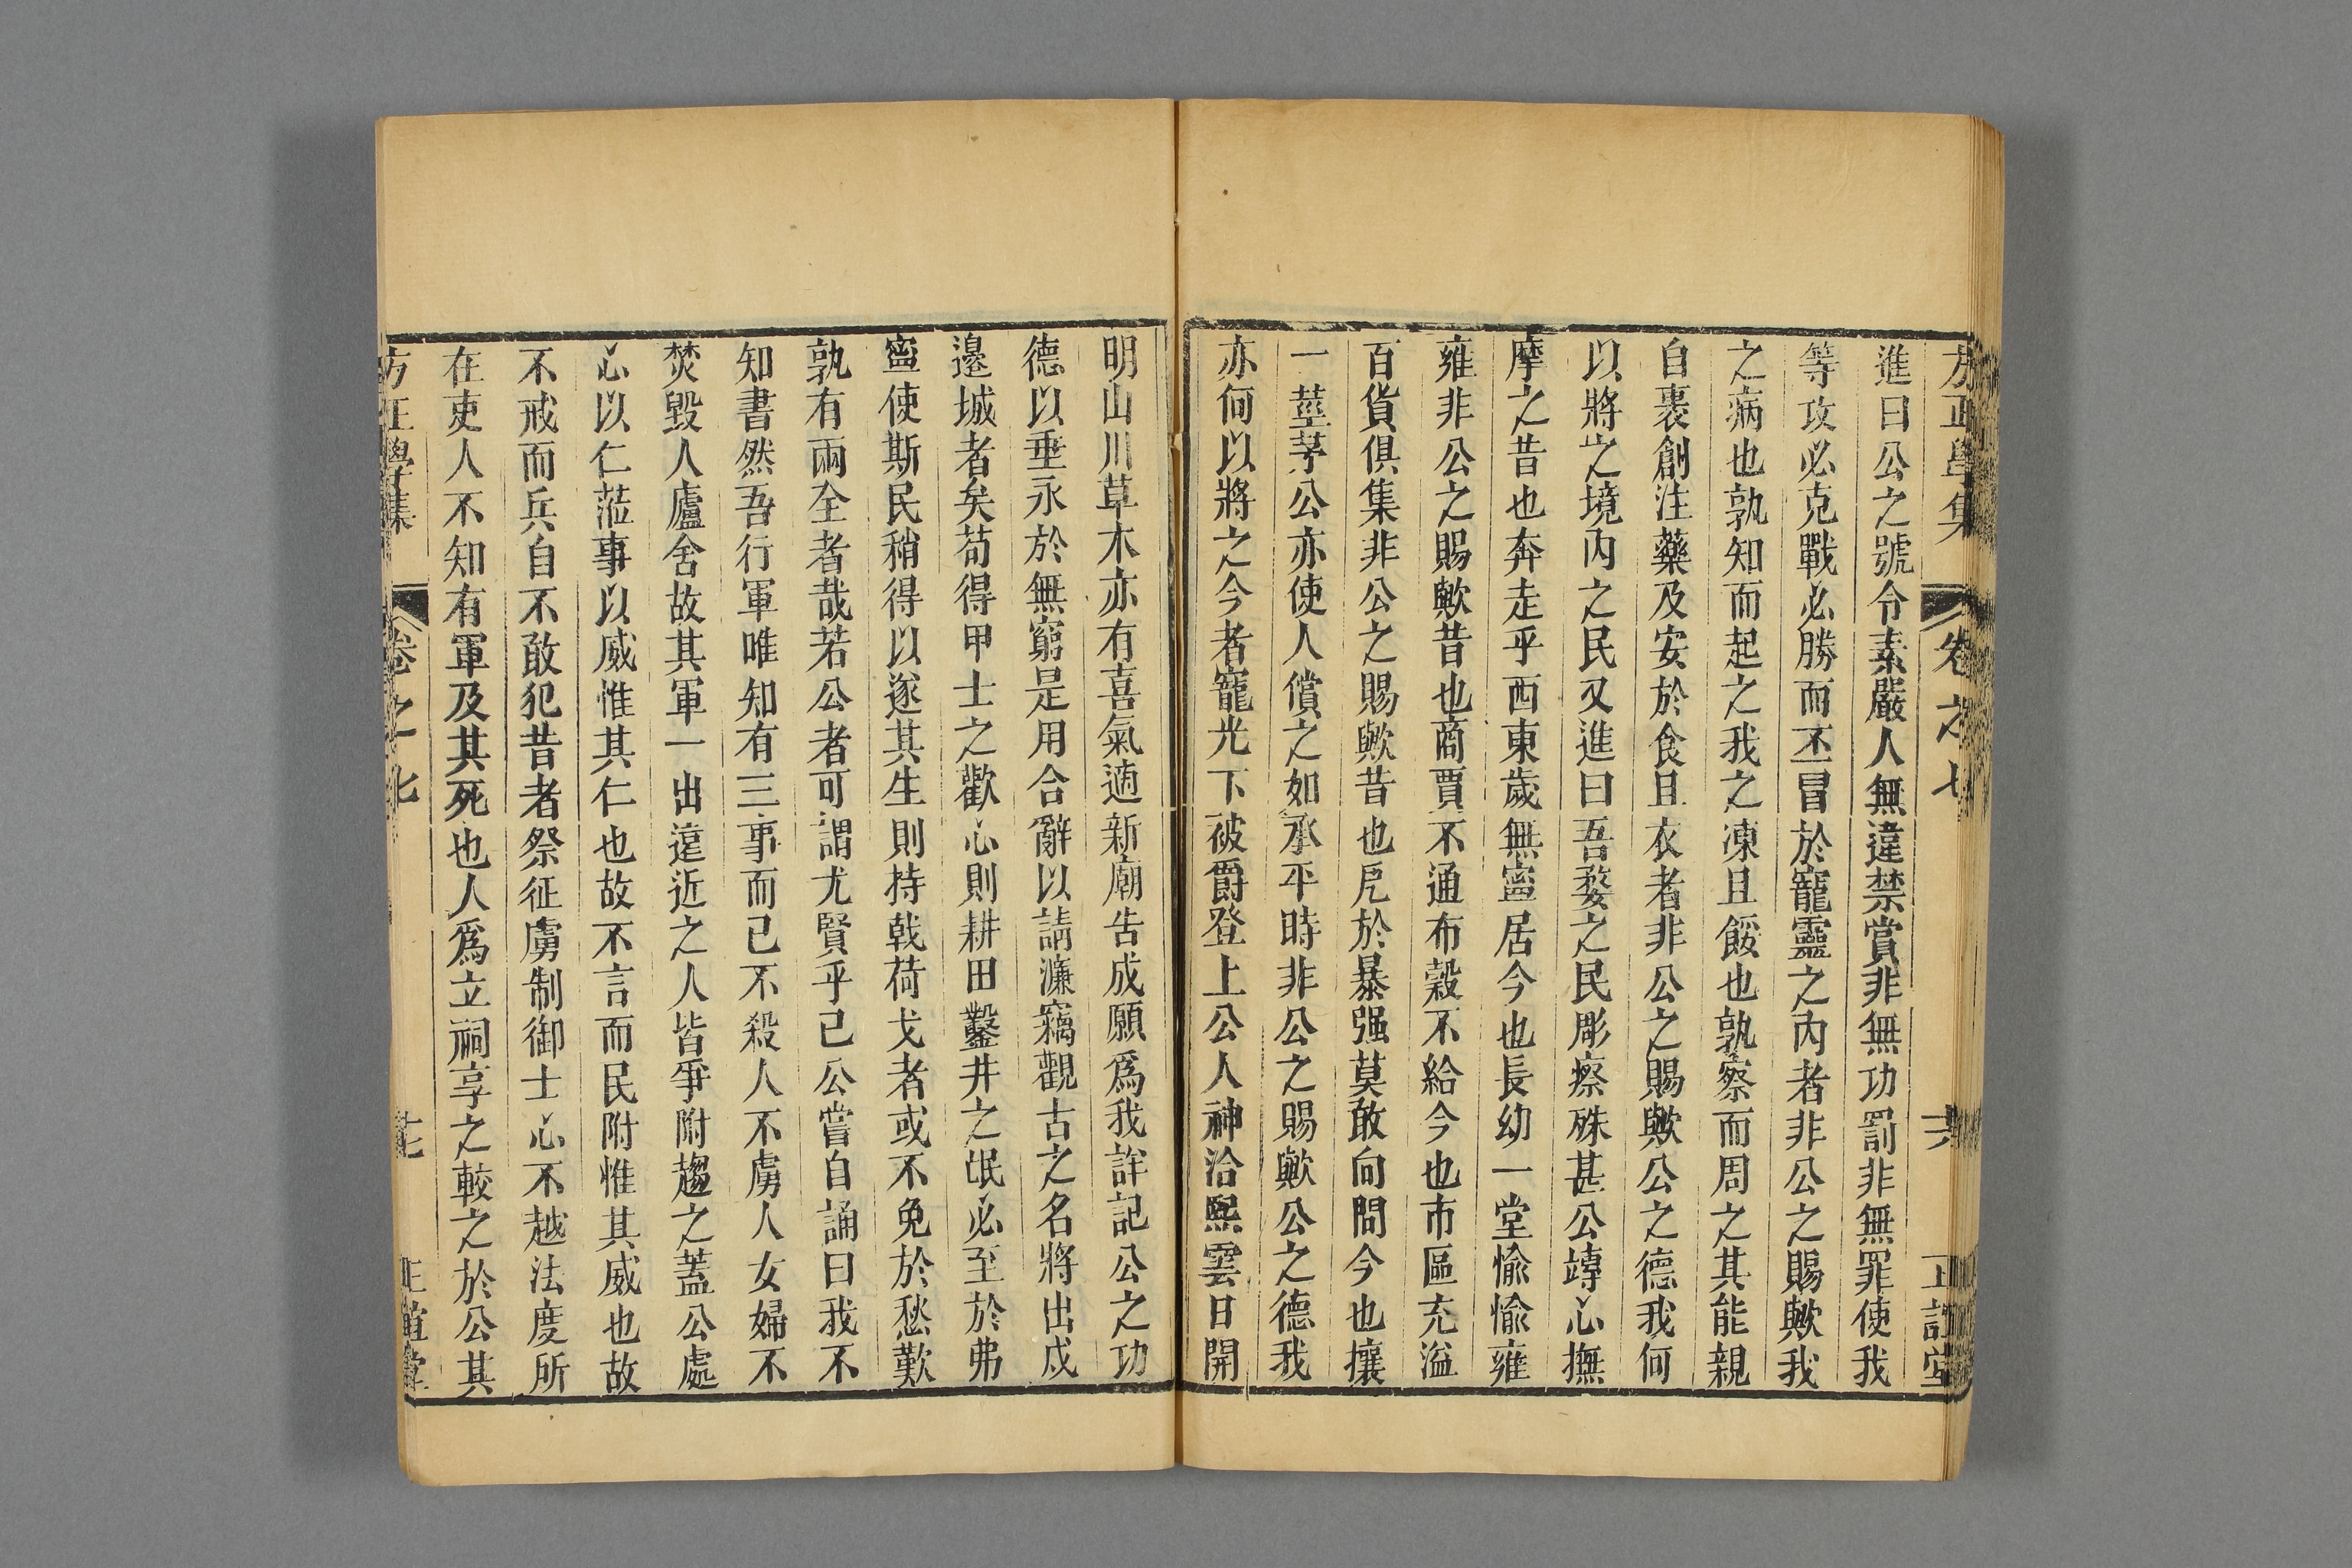 方正學集 卷之七 共 正誼堂
進曰公之號令素嚴人無違禁賞非無功罰非無罪使我
等攻必克戰必勝而丕冒於寵靈之內者非公之賜歟我
之病也孰知而起之我之凍且餒也孰察而周之其能親
自裹創注藥及安於食且衣者非公之賜歟公之德我何
以將之境內之民又進曰吾婺之民彫瘵殊甚公專心撫
摩之昔也奔走乎西東歲無寧居今也長幼一堂愉愉雍
雍非公之賜歟昔也商賈不通布穀不給今也市區充溢
百貨俱集非公之賜歟昔也戹於暴强莫敢向問今也攘
一莖茅公亦使人償之如承平時非公之賜歟公之德我
亦何以將之今者寵光下被爵登上公人神洽熙雲日開
明山川草木亦有喜氣適新廟告成願爲我詳記公之功
德以垂永於無窮是用合辭以請濂竊觀古之名將出戍
邊城者矣苟得甲士之歡心則耕田鑿井之氓必至於弗
寧使斯民稍得以遂其生則持戟荷戈者或不免於愁歎
孰有兩全者哉若公者可謂尤賢乎已公嘗自誦曰我不
知書然吾行軍唯知有三事而已不殺人不虜人女婦不
焚毀人廬舍故其軍一出遠近之人皆爭附趨之蓋公處
心以仁蒞事以威惟其仁也故不言而民附惟其威也故
不戒而兵自不敢犯昔者祭征虜制御士心不越法度所
在吏人不知有軍及其死也人爲立祠享之較之於公其
方正學集 卷之七 正誼堂